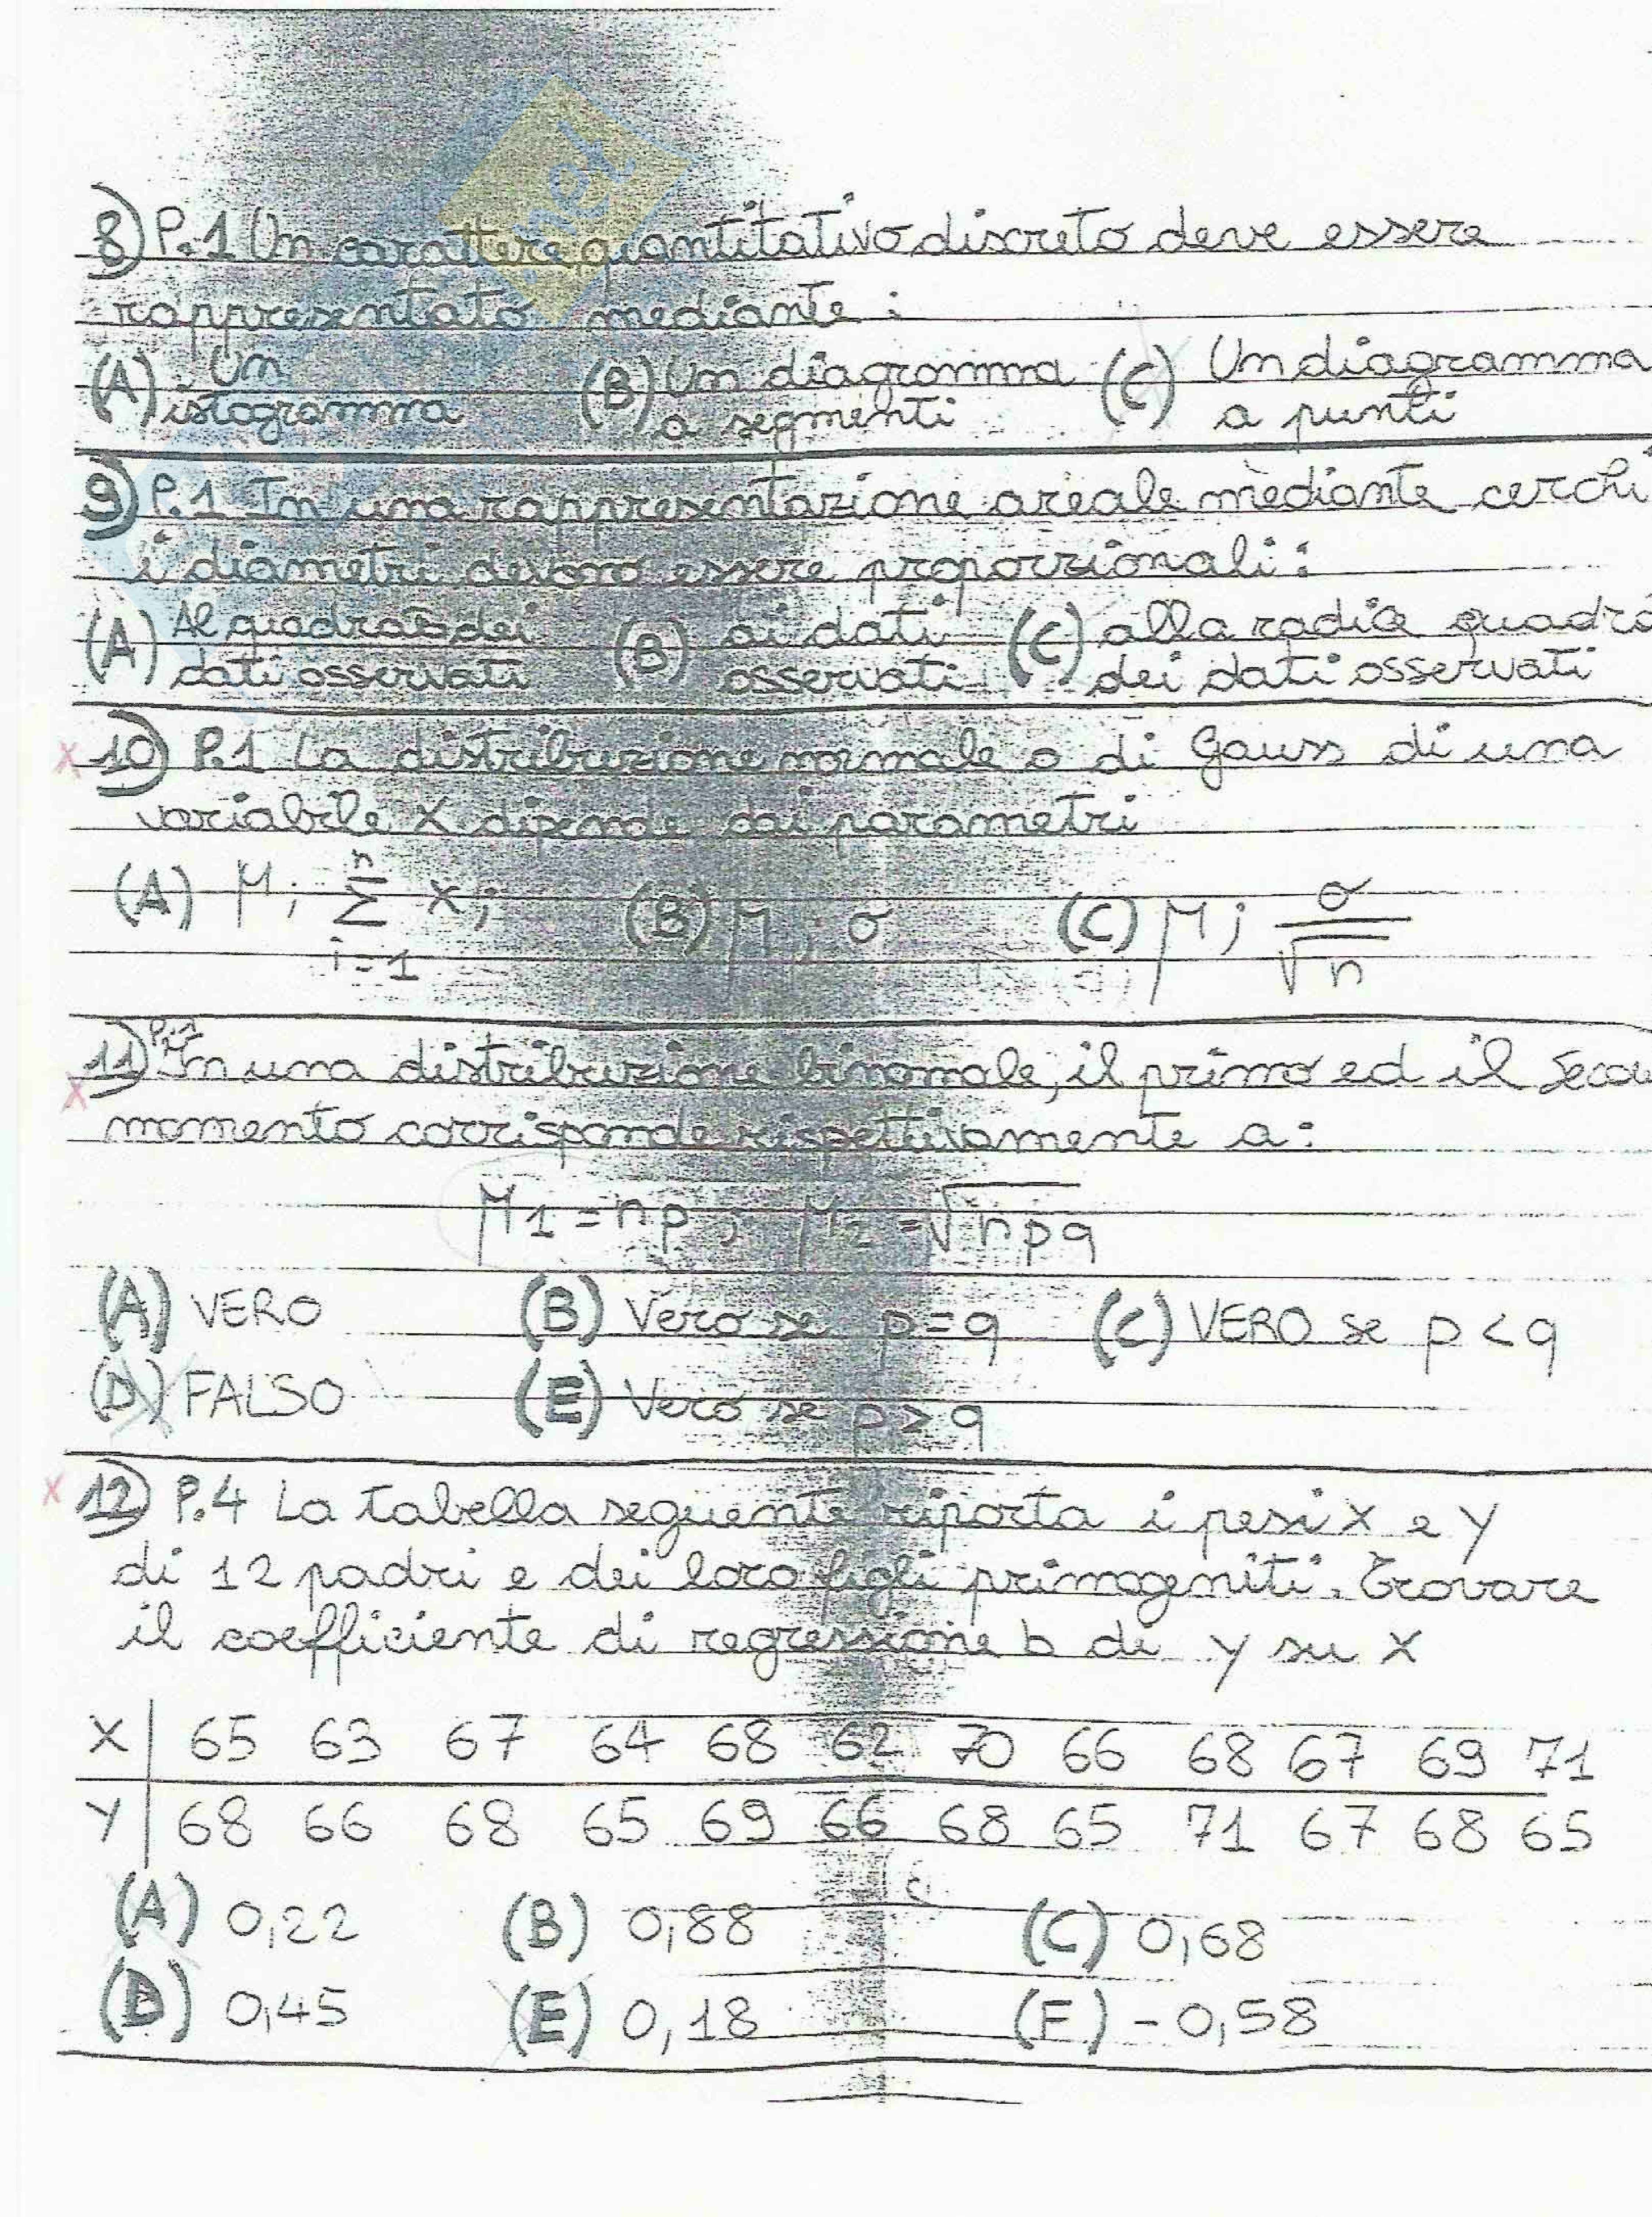 .net
8) P.1 Un carattere quantitativo discreto deve essere
rappresentato mediante:
(A) Un istogramma (B) Un diagramma a segmenti (C) Un diagramma a punti
9) P.1 In una rappresentazione areale mediante cerchi
i diametri devono essere proporzionali:
(A) Al quadrato dei dati osservati (B) ai dati osservati (C) alla radice quadra dei dati osservati
x 10) P.1 La distribuzione normale o di Gauss di una
variabile X dipende dai parametri
(A) μ; n Σ i=1 xi (B) μ; σ (C) μ; σ/√n
x 11) P.1 In una distribuzione binomiale, il primo ed il Secon
momento corrisponde rispettivamente a:
μ1 = np; μ2 = √npq
(A) VERO (B) Vero se p=q (C) VERO se p<q
(D) FALSO (E) Vero se p≥q
x 12) P.4 La tabella seguente riporta i pesi X e Y
di 12 padri e dei loro figli primogeniti. Trovare
il coefficiente di regressione b di Y su X
X 65 63 67 64 68 62 70 66 68 67 69 71
Y 68 66 68 65 69 66 68 65 71 67 68 65
(A) 0,22 (B) 0,88 (C) 0,68
(D) 0,45 (E) 0,18 (F) -0,58